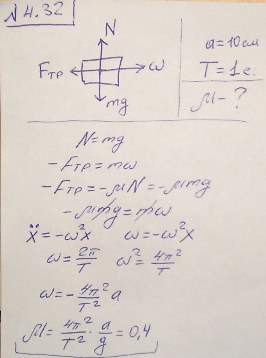 №4.32
N
Fтр
ω
mg
a=10см
T=1с.
μ-?
N=mg
-Fтр=mω
-Fтр=-μN=-μmg
-μmg=mω
ẍ=-ω²x ω=-ω²x
ω=2π/T ω²=4π²/T
ω=-4π²/T² a
μ=4π²/T²·a/g=0,4